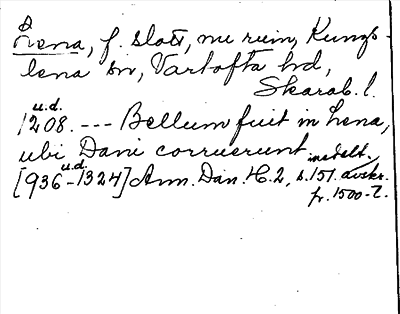 Lena, f. slott, nu ruin, Kungs-
lena sn, Vartofta hd,
Skarab. l.
u.d.
1208. --- Bellum fuit in Lena,
ubi Dani corruerunt
u.d.
[936-1324] Ann. Dan. H. 2, s. 151. avskr.
fr. 1500-t.